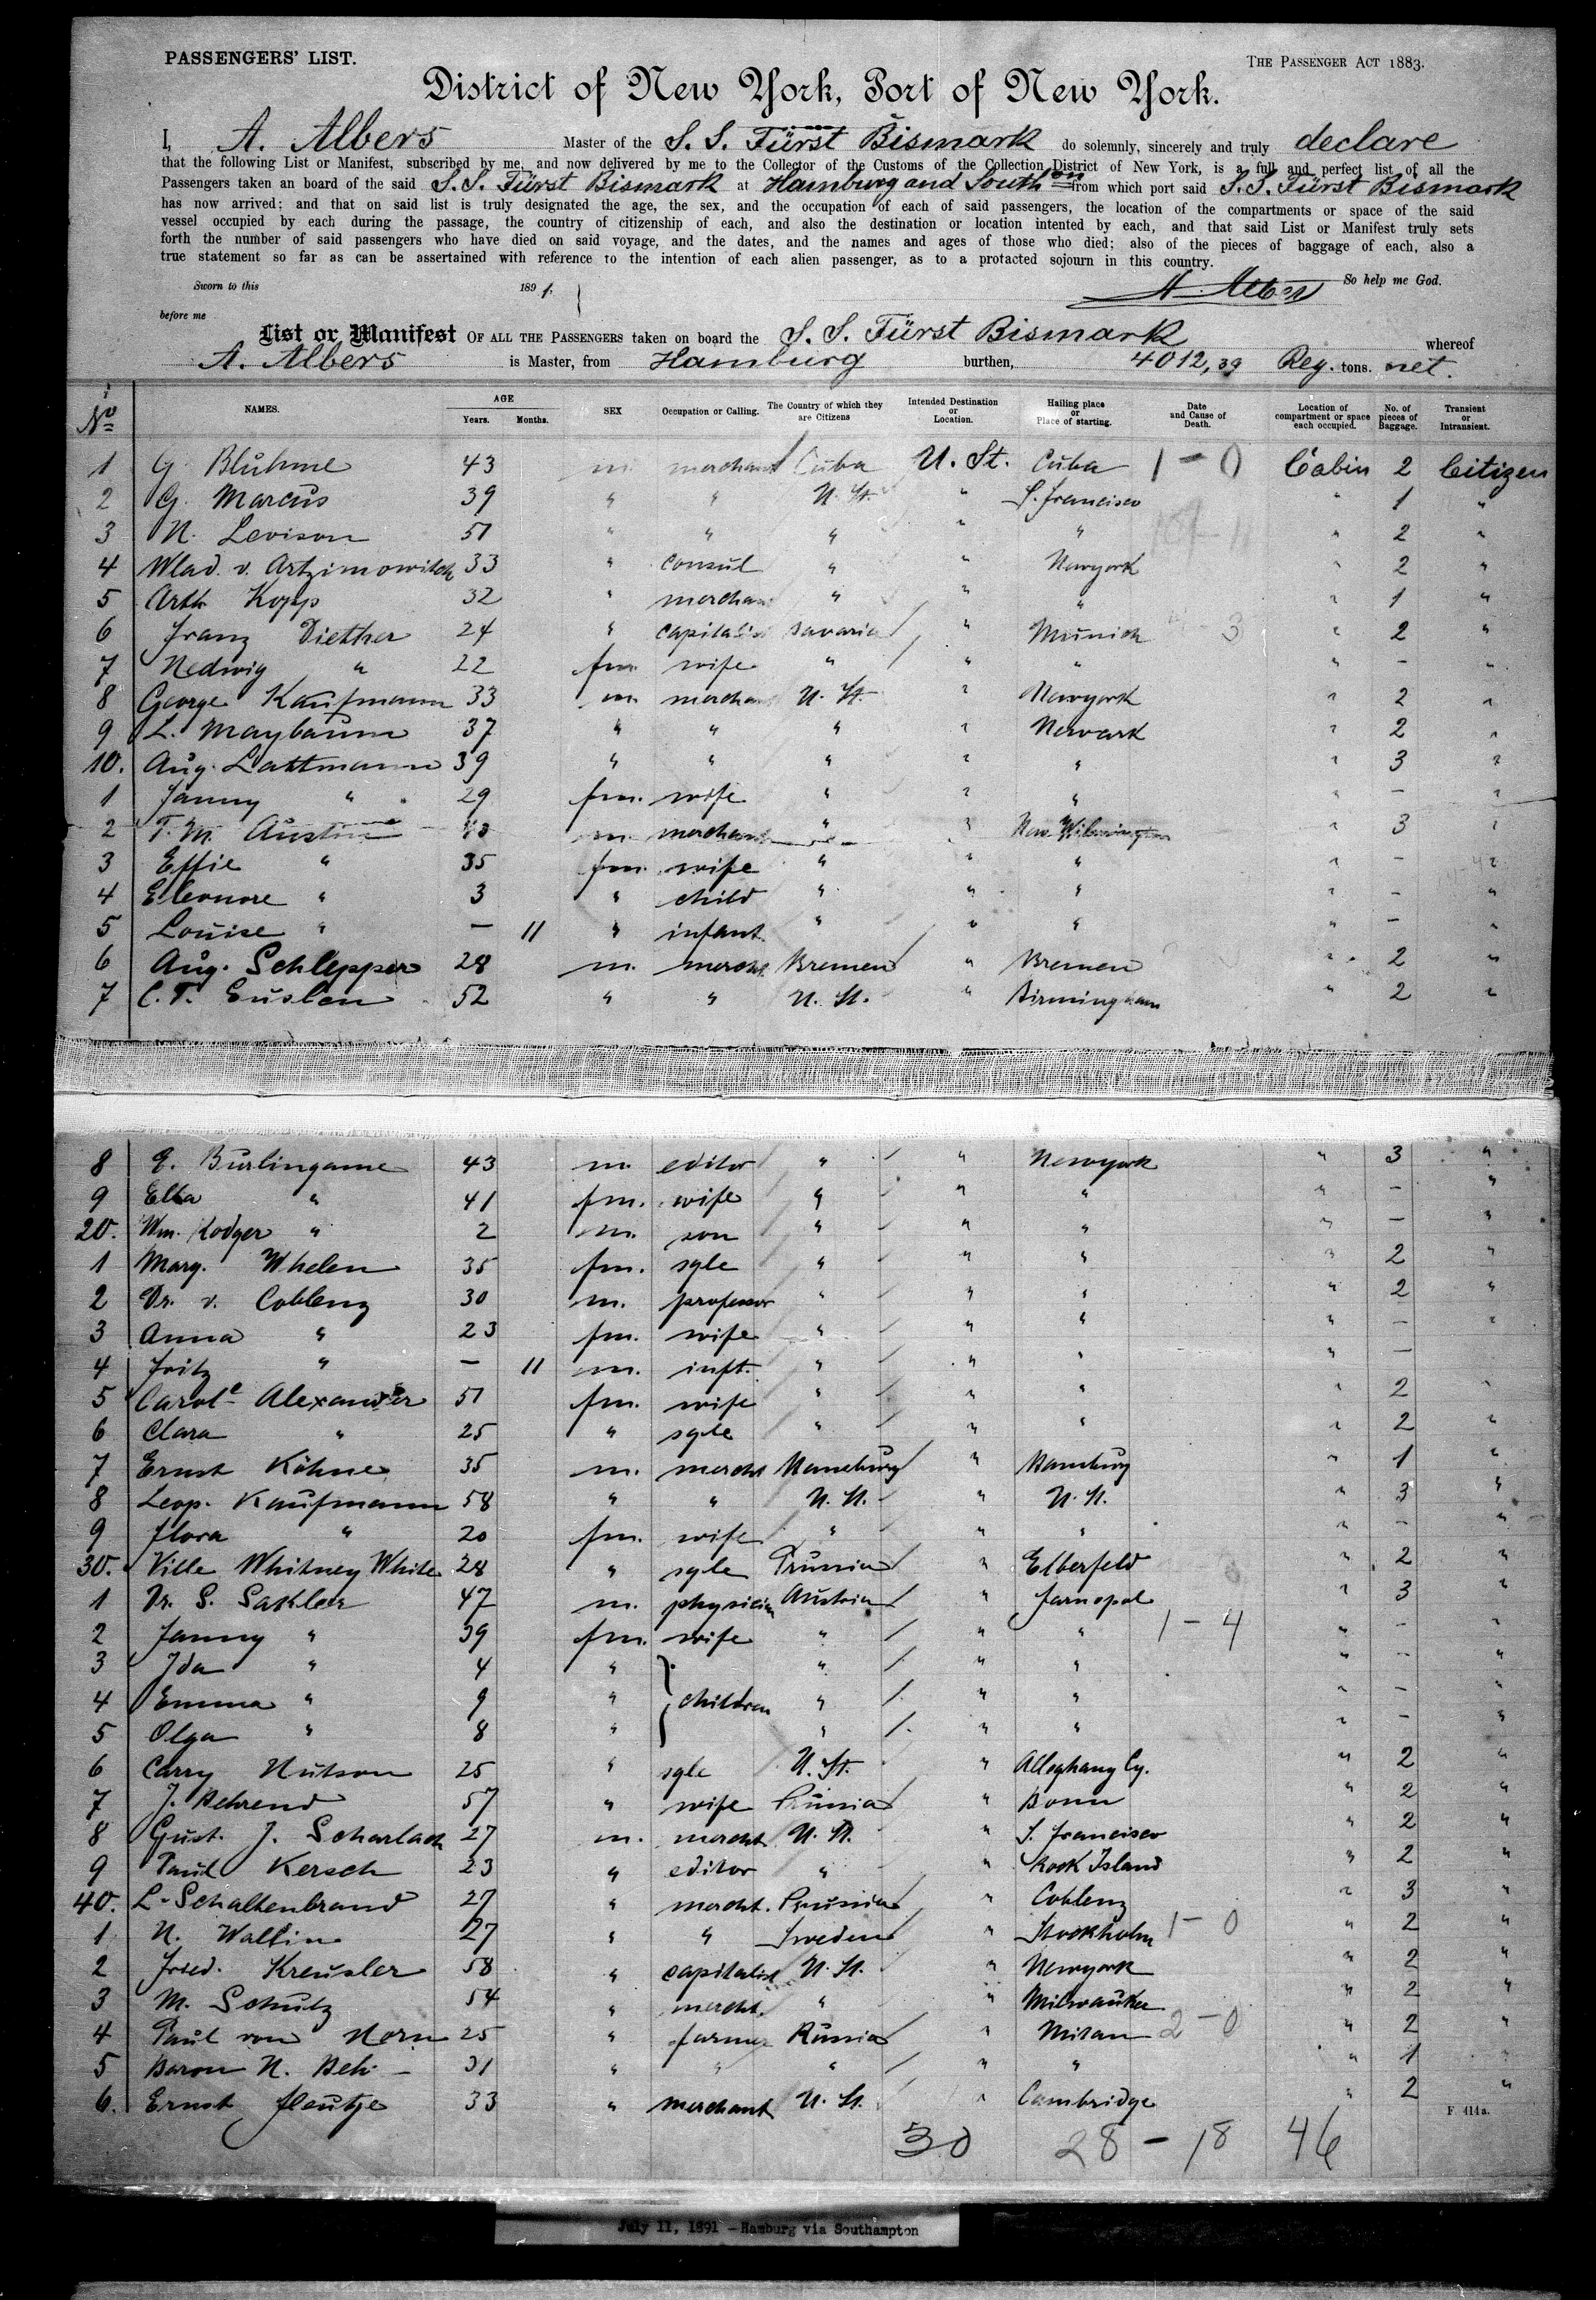 PASSENGERS' LIST.
THE PASSENGER ACT 1883.
District of New York, Port of New York.
I, A. Albers Master of the S. S. Fürst Bismark do solemnly, sincerely and truly declare
that the following List or Manifest, subscribed by me, and now delivered by me to the Collector of the Customs of the Collection District of New York, is a full and perfect list of all the
Passengers taken an board of the said S. S. Fürst Bismark at Hamburg and South'on from which port said S. S. Fürst Bismark
has now arrived; and that on said list is truly designated the age, the sex, and the occupation of each of said passengers, the location of the compartments or space of the said
vessel occupied by each during the passage, the country of citizenship of each, and also the destination or location intented by each, and that said List or Manifest truly sets
forth the number of said passengers who have died on said voyage, and the dates, and the names and ages of those who died; also of the pieces of baggage of each, also a
true statement so far as can be assertained with reference to the intention of each alien passenger, as to a protacted sojourn in this country.
Sworn to this 1891. A. Albers So help me God.
before me
List or Manifest OF ALL THE PASSENGERS taken on board the S. S. Fürst Bismark whereof
A. Albers is Master, from Hamburg burthen, 4012,39 Reg. tons. net.
No NAMES. AGE Years. Months. SEX Occupation or Calling. The Country of which they are Citizens Intended Destination or Location. Hailing place or Place of starting. Date and Cause of Death. Location of compartment or space each occupied. No. of pieces of Baggage. Transient or Intransient.
1 G. Blühme 43 m. merchant Cuba U. St. Cuba 1 - 0 Cabin 2 Citizen
2 G. Marcus 39 " " U. St. " S. Francisco " 1 "
3 N. Levison 51 " " " " " " 2 "
4 Wlad. v. Artzimowitch 33 " consul " " Newyork " 2 "
5 Arth. Kopp 32 " merchant " " " " 1 "
6 Franz Diether 24 " capitalist Bavaria " Munich 3 " 2 "
7 Hedwig " 22 fm. wife " " " " - "
8 George Kaufmann 33 m. merchant U. St. " Newyork " 2 "
9 L. Maybaum 37 " " " " Newark " 2 "
10. Aug. Lattmann 39 " " " " " " 3 "
1 Fanny " 29 fm. wife " " " " - "
2 T. M. Austin m. merchant " " New Wilmington " 3 "
3 Effie " 35 fm. wife " " " " - "
4 Eleonore " 3 " child " " " " - "
5 Louise " - 11 " infant " " " " - "
6 Aug. Schlepper 28 m. mercht. Bremen " Bremen " 2 "
7 C. T. Euslen 52 " " U. St. " Birmingham " 2 "
8 E. Burlingame 43 m. editor " " Newyork " 3 "
9 Ella " 41 fm. wife " " " " - "
20. Wm. Rodger " 2 m. son " " " " - "
1 Marg. Whelen 35 fm. sgle " " " " 2 "
2 Dr. v. Coblenz 30 m. professor " " " " 2 "
3 Anna " 23 fm. wife " " " " - "
4 Fritz " - 11 m. inft. " " " " -
5 Carole Alexander 51 fm. wife " " " " 2 "
6 Clara " 25 " sgle " " " " 2 "
7 Ernst Köhne 35 m. mercht Hamburg " Hamburg " 1 "
8 Leop. Kaufmann 58 " " U. St. " U. St. " 3 "
9 Flora " 20 fm. wife " " " " - "
30. Ville Whitney White 28 " sgle Prussia " Elberfeld " 2 "
1 Dr. S. Sakler 47 m. physician Austria " Tarnopol " 3 "
2 Fanny " 39 fm. wife " " " 1 - 4 " - "
3 Ida " 4 " " " " " - "
4 Emma " 9 " children " " " " - "
5 Olga " 8 " " " " " - "
6 Carry Hutson 25 " sgle U. St. " Alleghany Cy. " 2 "
7 J. Behrend 57 " wife Prussia " Bonn " 2 "
8 Gust. J. Scharlach 27 m. mercht. U. St. " S. Francisco " 2 "
9 Paul Kersch 23 " editor " " Rock Island " 2 "
40. L. Schaltenbrand 27 " mercht. Prussia " Coblenz " 3 "
1 N. Wallin 27 " " Sweden " Stockholm 1 - 0 " 2 "
2 Fried. Kreusler 58 " capitalist U. St. " Newyork " 2 "
3 M. Schutz 54 " mercht. " " Milwaukee " 2 "
4 Paul von Horn 25 " farmer Russia " Mitau 2 - 0 " 2 "
5 Baron N. Behr 31 " " " " " " 1 "
6. Ernst Flentje 33 " merchant U. St. " Cambridge " 2 "
F 414a.
30 28 - 18 46
July 11, 1891 - Hamburg via Southampton